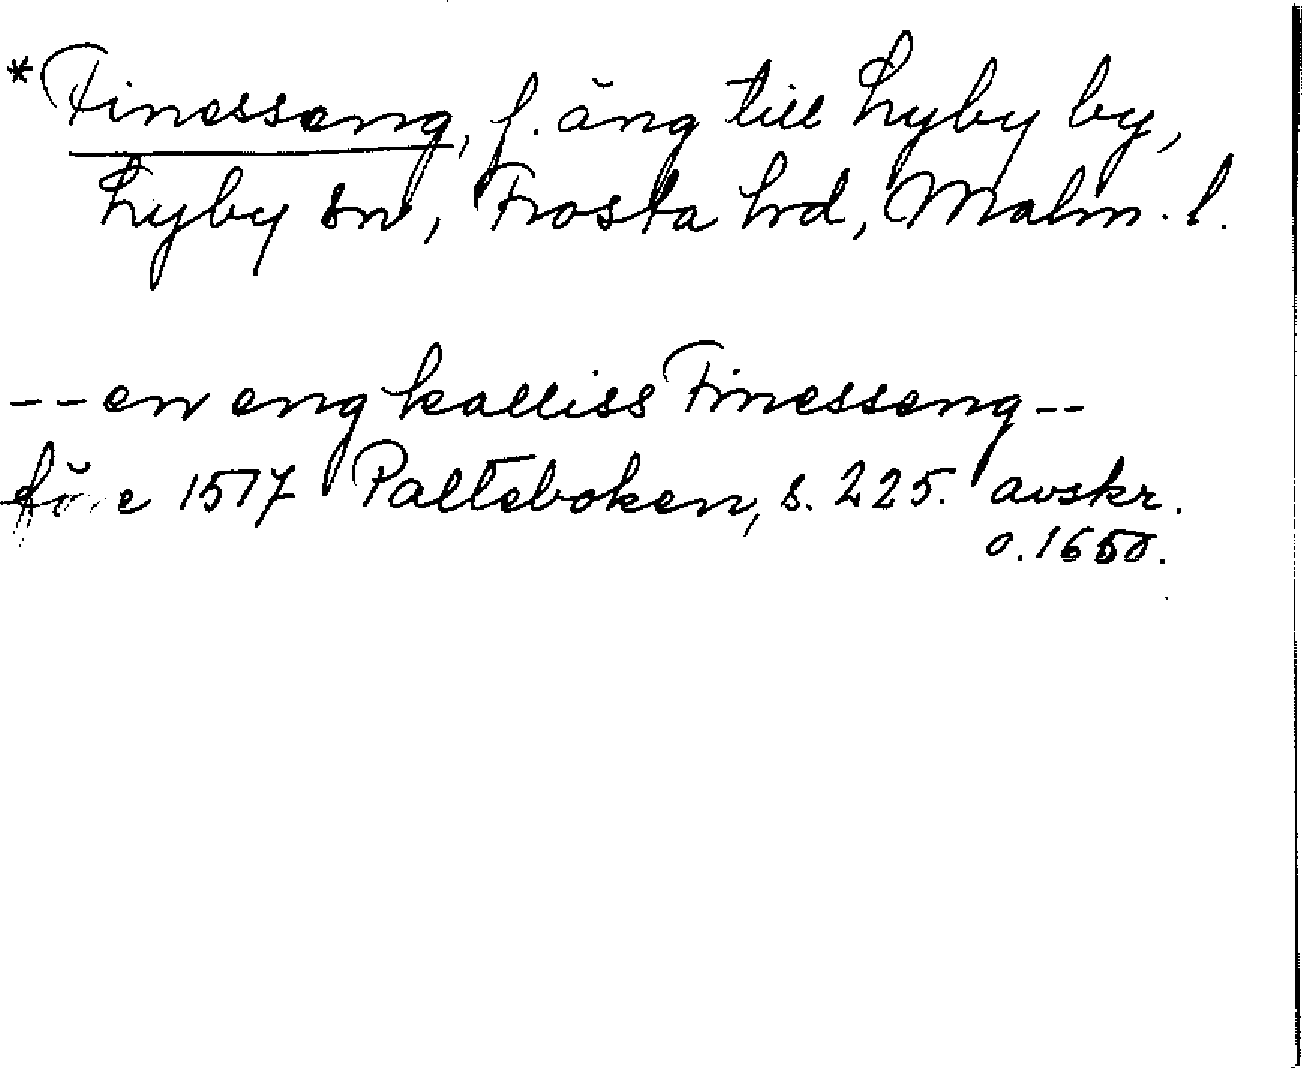 *Finesseng, f. äng till Lyby by,
Lyby sn, Frosta hrd, Malm. l.
-- en eng kalliss Finesseng --
före 1517 Palteboken, s. 225. avskr.
o. 1650.